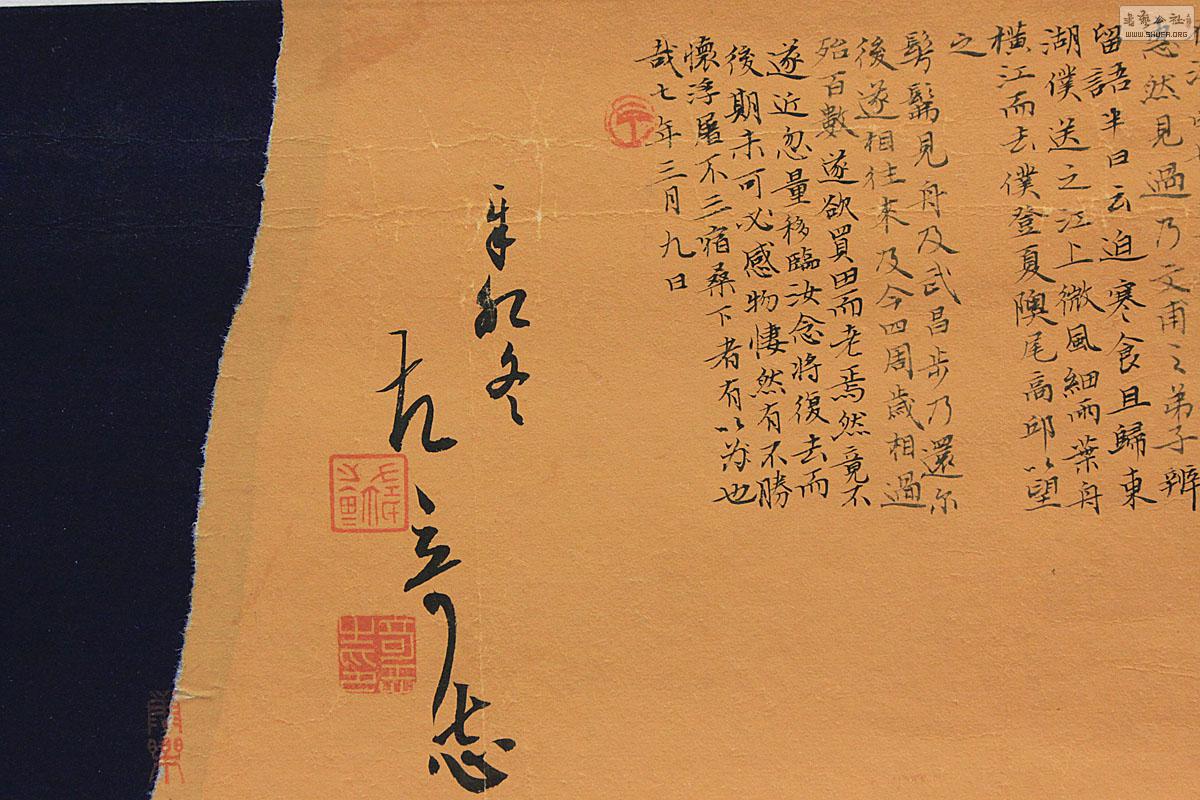 惠然見過乃文甫之弟子辨
留語半日云迫寒食且歸東
湖僕送之江上微風細雨葉舟
橫江而去僕登夏隩尾高邱以望
之
髣髴見舟及武昌步乃還尔
後遂相往來及今四周歲相過
殆百數遂欲買田而老焉然竟不
遂近忽量移臨汝念將復去而
後期未可必感物悽然有不勝
懷浮屠不三宿桑下者有以为也
哉七年三月九日
辛卯冬
左竒志
書藝公社
WWW.SHUFA.ORG